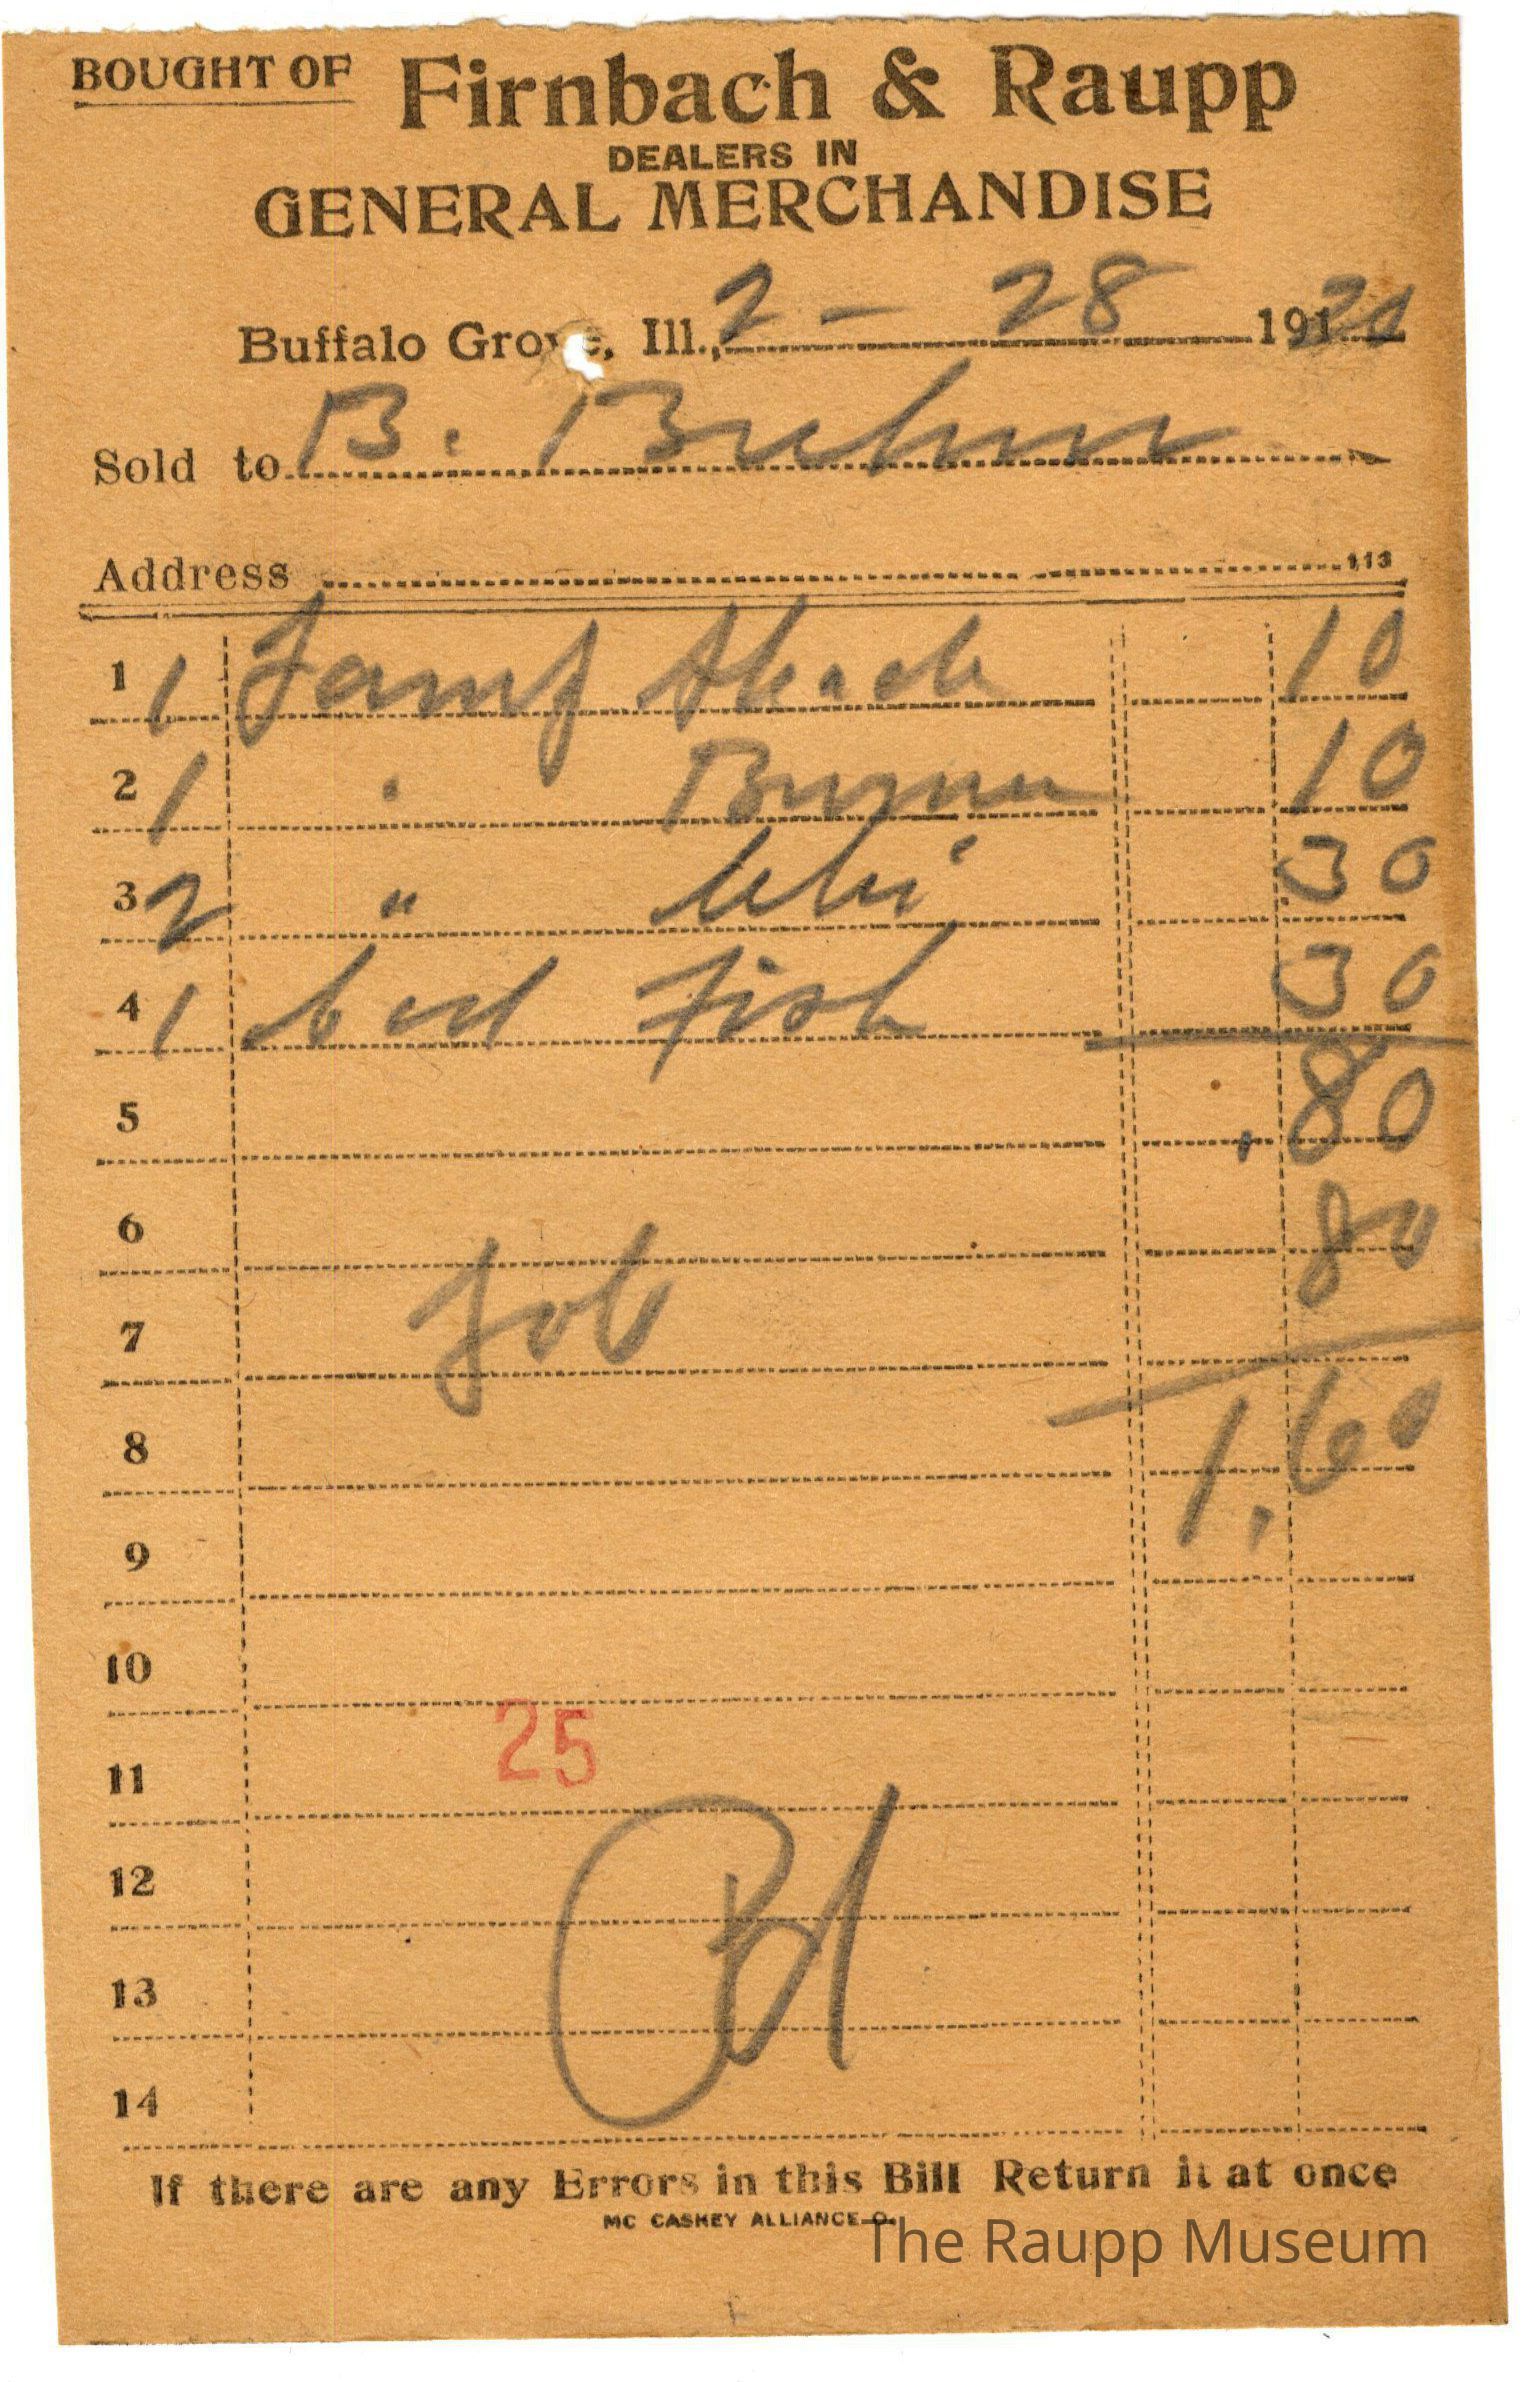 BOUGHT OF Firnbach & Raupp
DEALERS IN
GENERAL MERCHANDISE
Buffalo Grove, Ill., 2 - 28 191
Sold to B.
Address 113
1 1 Lamp 10
2 1 " 10
3 2 " 30
4 1 Fish 30
5 .80
6 80
7 Job
8 1,60
9
10
25
11
12
Pd
13
14
If there are any Errors in this Bill Return it at once
MC CASKEY ALLIANCE O.
The Raupp Museum